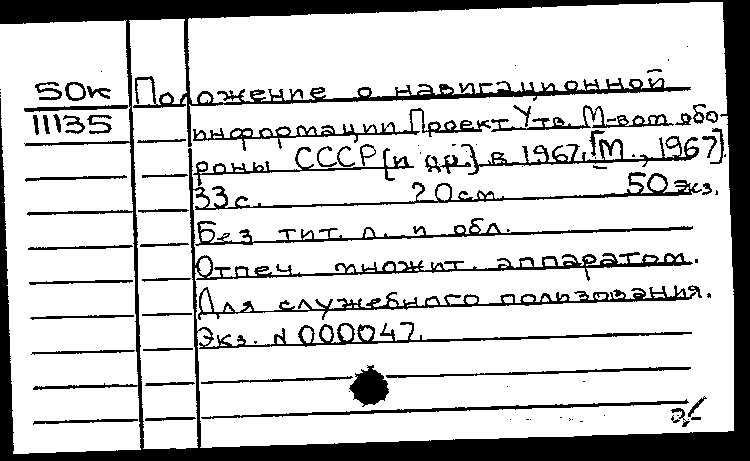 50к Положение о навигационной
11135 информации Проект Утв. М-вом обо-
роны СССР [и др.] в 1967. [М., 1967].
33 с. 20 см. 50 экз.
Без тит. л. и обл.
Отпеч. множит. аппаратом.
Для служебного пользования.
Экз. № 000047.